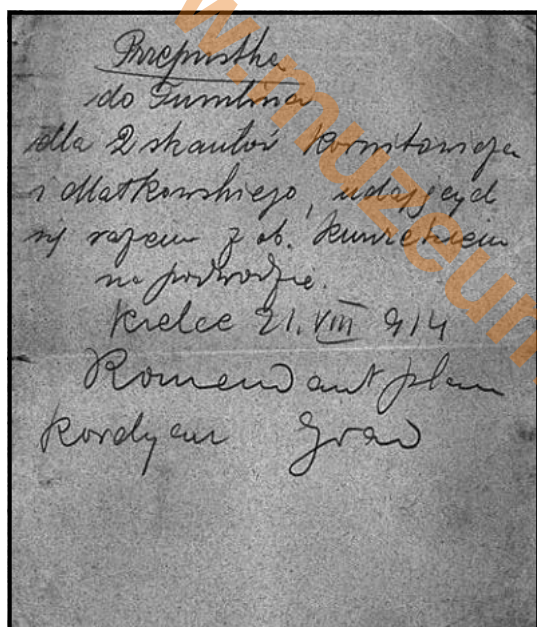 Przepustka
do Tumlina
dla 2 skautów Kornitowicza
i Matkowskiego, udających
się razem z ob. Kunickiem
na podwodzie.
Kielce 21.VIII 914
Komendant placu
Kordyan Grad
www.muzeum